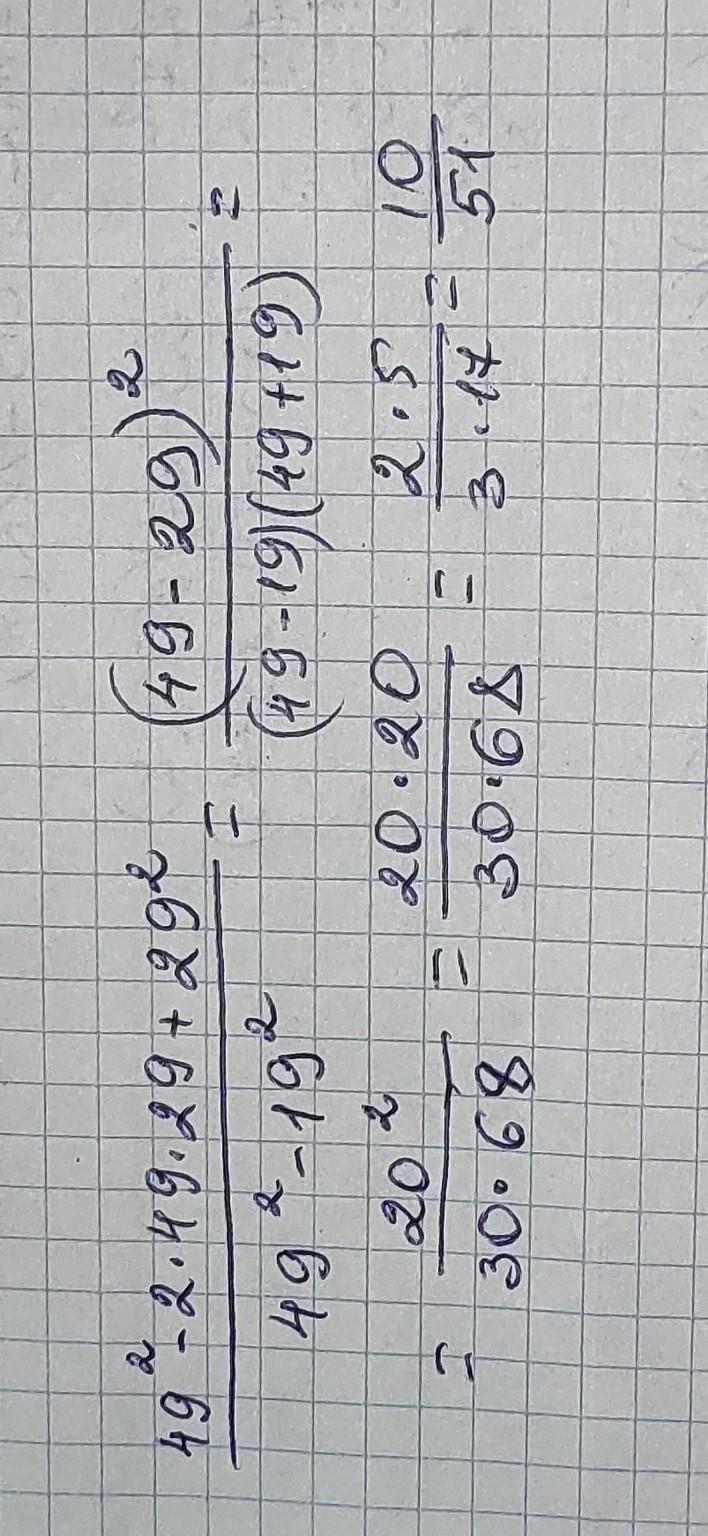 49² - 2·49·29 + 29² / 49² - 19² = (49 - 29)² / (49 - 19)(49 + 19) =
= 20² / 30·68 = 20·20 / 30·68 = 2·5 / 3·17 = 10 / 51